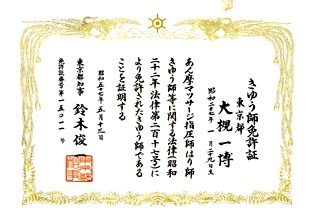 きゆう師免許証
東京都
大槻一博
昭和二七年一月二九日生
あん摩マッサージ指圧師はり師
きゆう師等に関する法律(昭和
二十二年法律第二百十七号)に
より免許されたきゆう師である
ことを証明する
昭和五七年五月十三日
東京都知事 鈴木俊一
免許証番号第一五〇一一号